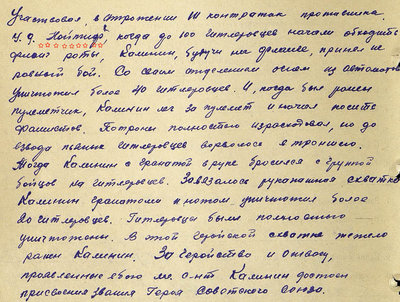 Участвовал в отражении 14 контратак противника.
У д. Койтиде, когда до 100 гитлеровцев начали обходить
фланг роты, Калинин, будучи на фланге, принял не
равный бой. Со своим отделением огнем из автоматов
уничтожил более 40 гитлеровцев. И, когда был ранен
пулеметчик, Калинин лег за пулемет и начал косить
фашистов. Патроны полностью израсходовал, но до
взвода пьяных гитлеровцев ворвалось в траншею.
Тогда Калинин с гранатой в руке бросился с группой
бойцов на гитлеровцев. Завязалась рукопашная схватка
Калинин гранатами и ножом уничтожил более
20 гитлеровцев. Гитлеровцы были полностью
уничтожены. В этой геройской схватке тяжело
ранен Калинин. За геройство и отвагу,
проявленные в бою мл. с-нт Калинин достоин
присвоения звания Героя Советского Союза.